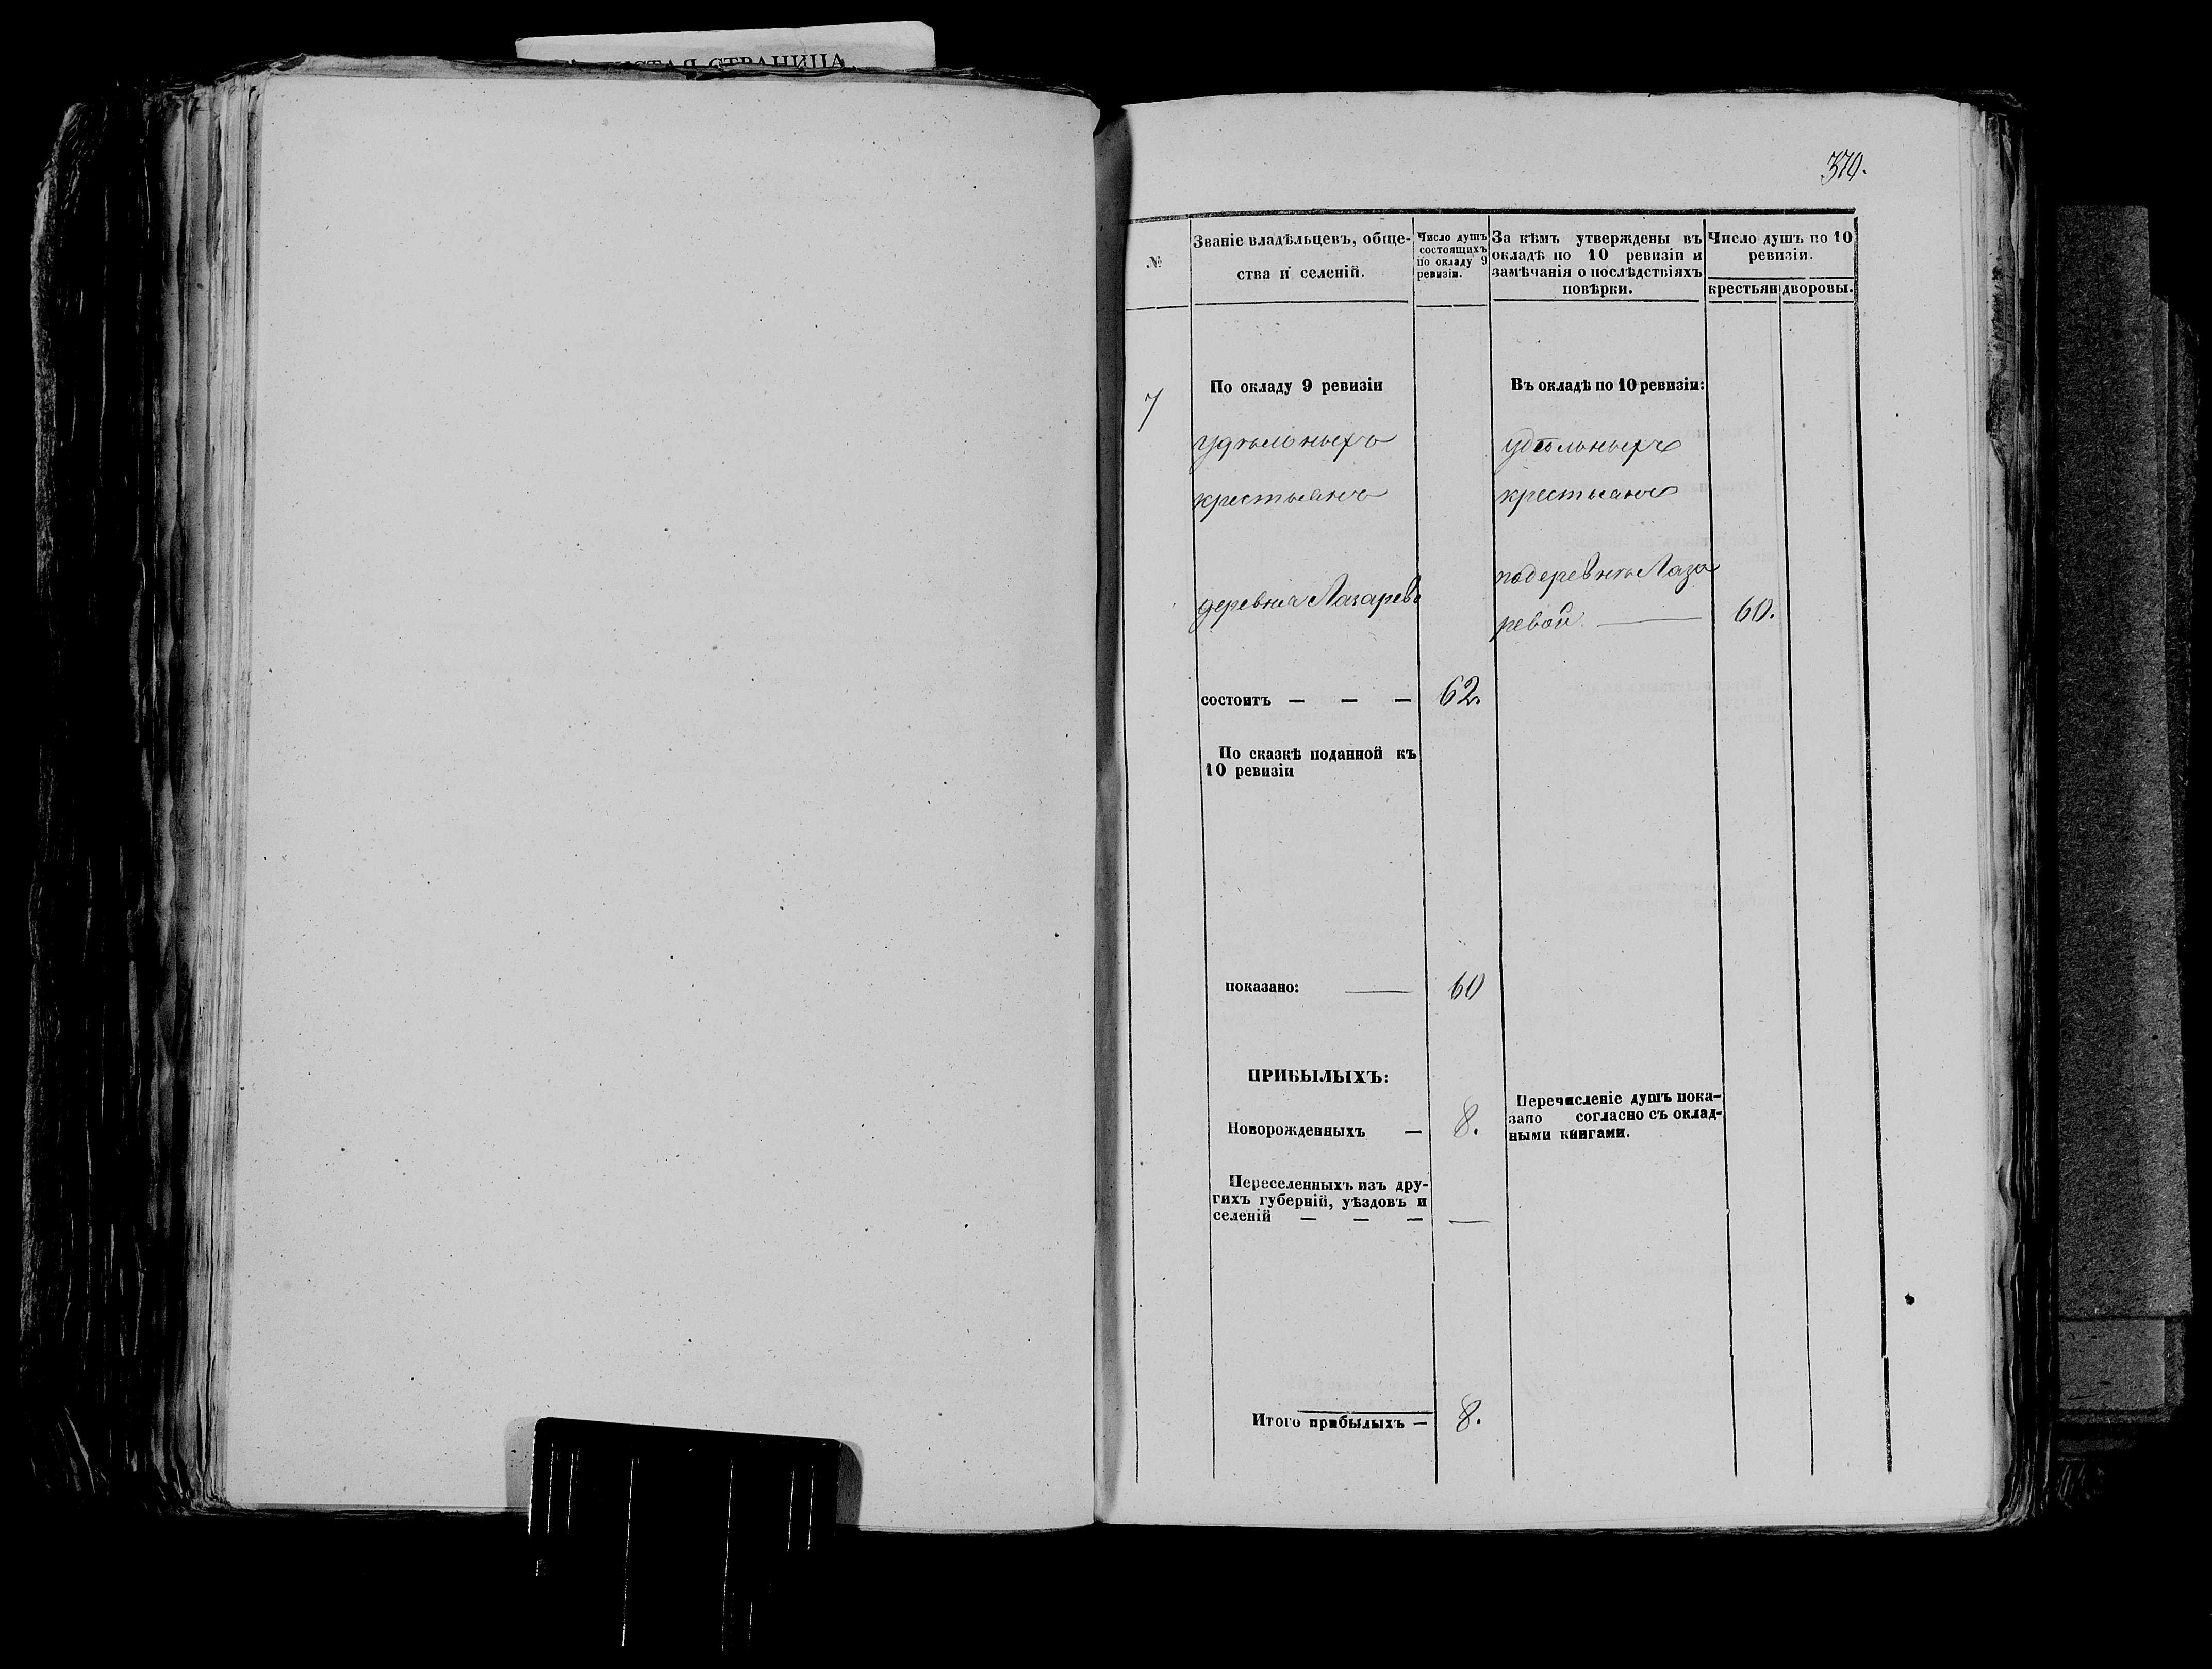 ЧИСТАЯ СТРАНИЦА
370.
№
Званіе владѣльцевъ, обще-
ства и селеній.
Число душъ
состоящихъ
по окладу 9
ревизіи.
За кѣмъ утверждены въ
окладѣ по 10 ревизіи и
замѣчанія о послѣдствіяхъ
повѣрки.
Число душъ по 10
ревизіи.
крестьян
дворовы.
7
По окладу 9 ревизіи
удѣльныхъ
крестьянъ
деревни Лазарево
состоитъ — — — 62.
По сказкѣ поданной къ
10 ревизіи
показано: — 60
ПРИБЫЛЫХЪ:
Новорожденныхъ — 8.
Переселенныхъ изъ дру-
гихъ губерній, уѣздовъ и
селеній — — — —
Итого прибылыхъ — 8.
Въ окладѣ по 10 ревизіи:
удѣльныхъ
крестьянъ
по деревнѣ Лаза
ревой — 60.
Перечисленіе душъ пока-
зано согласно съ оклад-
ными книгами.